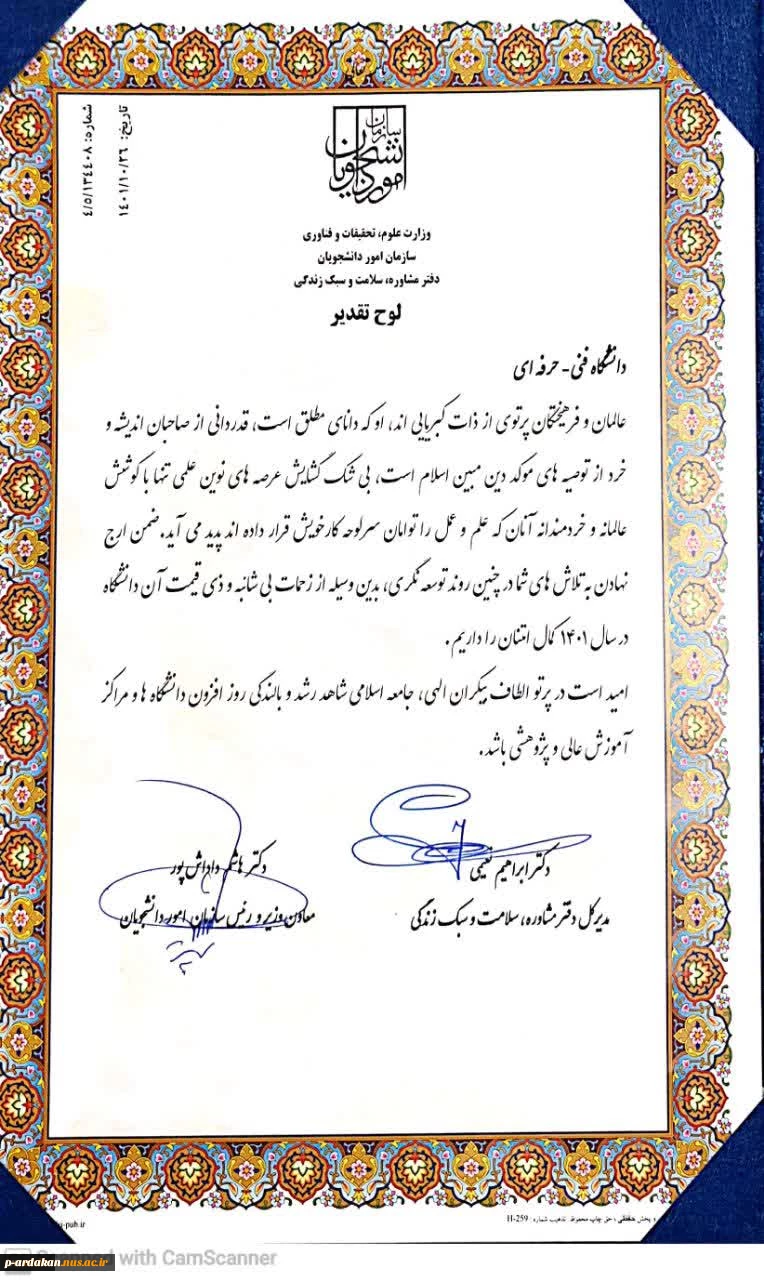 تاریخ: ۱۴۰۱/۱۰/۲۶
شماره: ۴/۵/۱۳۴۴۰۸
سازمان امور دانشجویان
وزارت علوم، تحقیقات و فناوری
سازمان امور دانشجویان
دفتر مشاوره، سلامت و سبک زندگی
لوح تقدیر
دانشگاه فنی - حرفه ای
عالمان و فرهیختگان پرتوی از ذات کبریایی اند، او که دانای مطلق است، قدردانی از صاحبان اندیشه و
خرد از توصیه های موکد دین مبین اسلام است، بی شک گشایش عرصه های نوین علمی تنها با کوشش
عالمانه و خردمندانه آنان که علم و عمل را توامان سرلوحه کار خویش قرار داده اند پدید می آید. ضمن ارج
نهادن به تلاش های شما در چنین روند توسعه نگری، بدین وسیله از زحمات بی شائبه و ذی قیمت آن دانشگاه
در سال ۱۴۰۱ کمال امتنان را داریم.
امید است در پرتو الطاف بیکران الهی، جامعه اسلامی شاهد رشد و بالندگی روز افزون دانشگاه ها و مراکز
آموزش عالی و پژوهشی باشد.
دکتر ابراهیم نعیمی
مدیرکل دفتر مشاوره، سلامت و سبک زندگی
دکتر هاشم داداش پور
معاون وزیر و رئیس سازمان امور دانشجویان
و پخش حقیقی ؛ حق چاپ محفوظ. تذهیب شماره : H-259
-pub.ir
Scanned with CamScanner
p-ardakan.nus.ac.ir